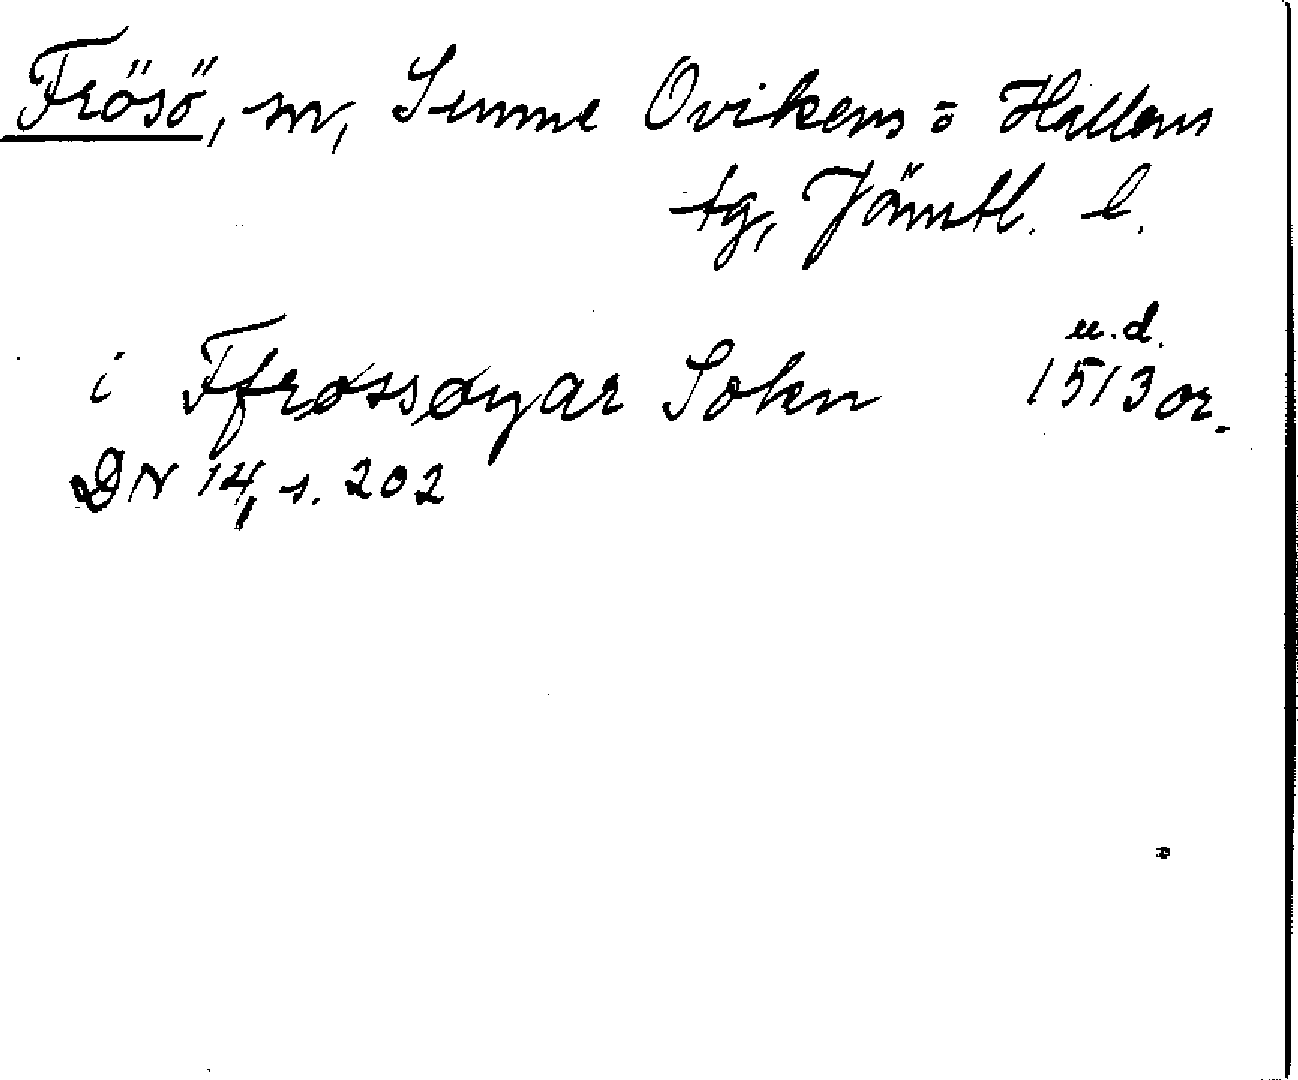 Frösö, sn, Sunne Ovikens o Hallens
tg, Jämtl. l.
u.d.
i Ffrøssøyar Sokn 1513 or.
DN 14, s. 202